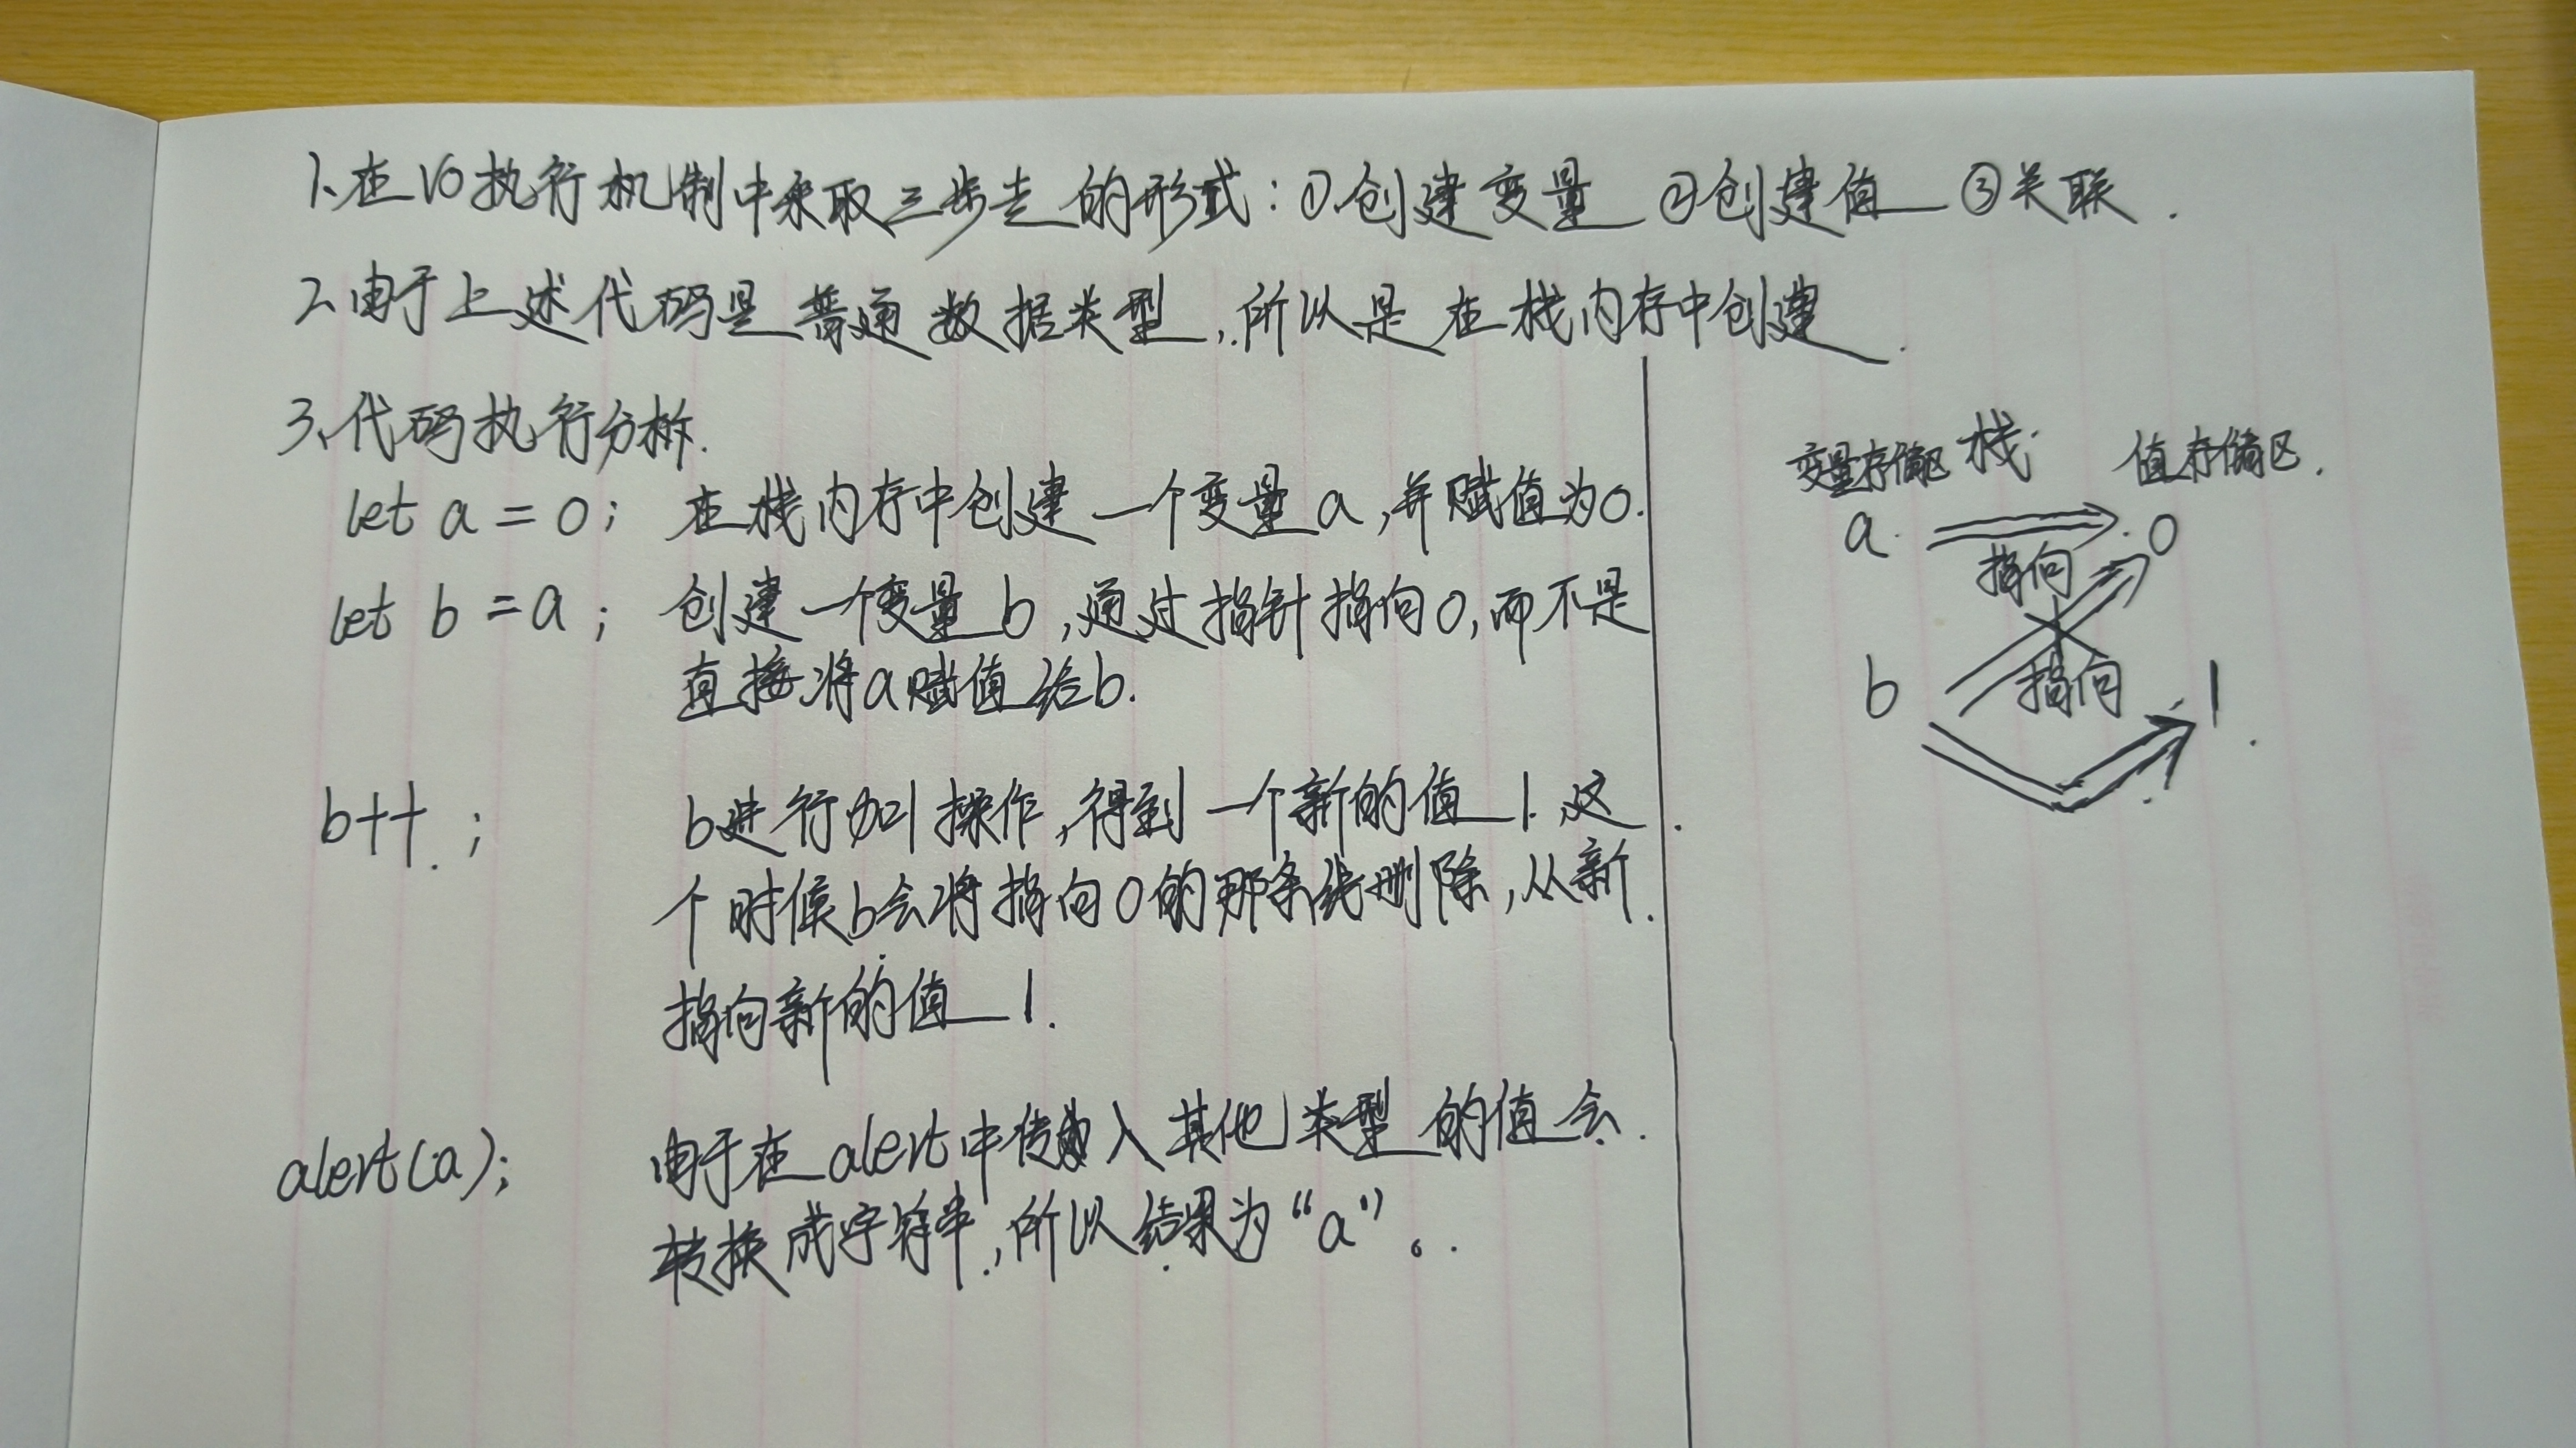 1、在VO执行机制中采取三步走的形式：①创建变量 ②创建值 ③关联.
2、由于上述代码是普通数据类型,所以是在栈内存中创建.
3、代码执行分析.
let a = 0; 在栈内存中创建一个变量a,并赋值为0.
let b = a; 创建一个变量b,通过指针指向0,而不是
直接将a赋值给b.
b++; b进行加1操作,得到一个新的值1.这
个时候b会将指向0的那条线删除,从新
指向新的值1.
alert(a); 由于在alert中传入其他类型的值会
转换成字符串,所以结果为“a”。
变量存储区 栈: 值存储区.
a 0
指向
b 指向 1